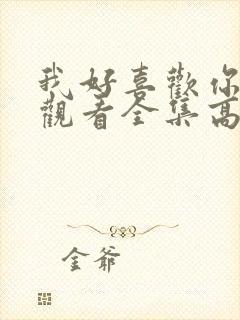 我好喜歡你
觀看全集高
金爺